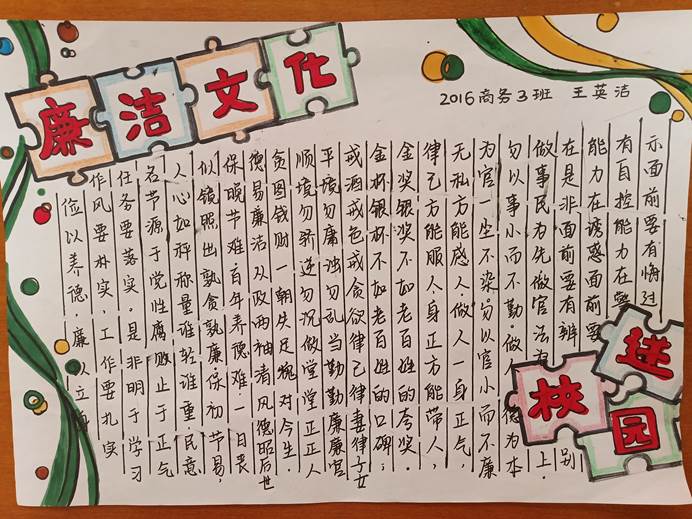 廉洁文化
2016商务3班 王英洁
俭以养德,廉以立
作风要朴实,工作要扎实
任务要落实。是非明于学习
名节源于党性腐败止于正气
人心如秤称量谁轻谁重民意
似镜照出孰贪孰廉。保初节易,
保晚节难百年养德难一日畏
德易廉洁从政两袖清风德昭后世
贪图钱财一朝失足愧对今生.
顺境勿骄逆勿沉做堂堂正正人
平境勿庸浊勿乱当勤勤廉廉官
戒酒戒色戒贪欲律己律妻律子女
金杯银杯不如老百姓的口碑;
金奖银奖不如老百姓的夸奖.
律己方能服人身正方能带人,
无私方能感人做人一身正气,
为官一尘不染勿以官小而不廉
勿以事小而不勤。做 德为本
做事民为先做官法 上.
在是非面前要有辨 别
能力在诱惑面前要
有自控能力在
示面前要有悔过
迷
校园